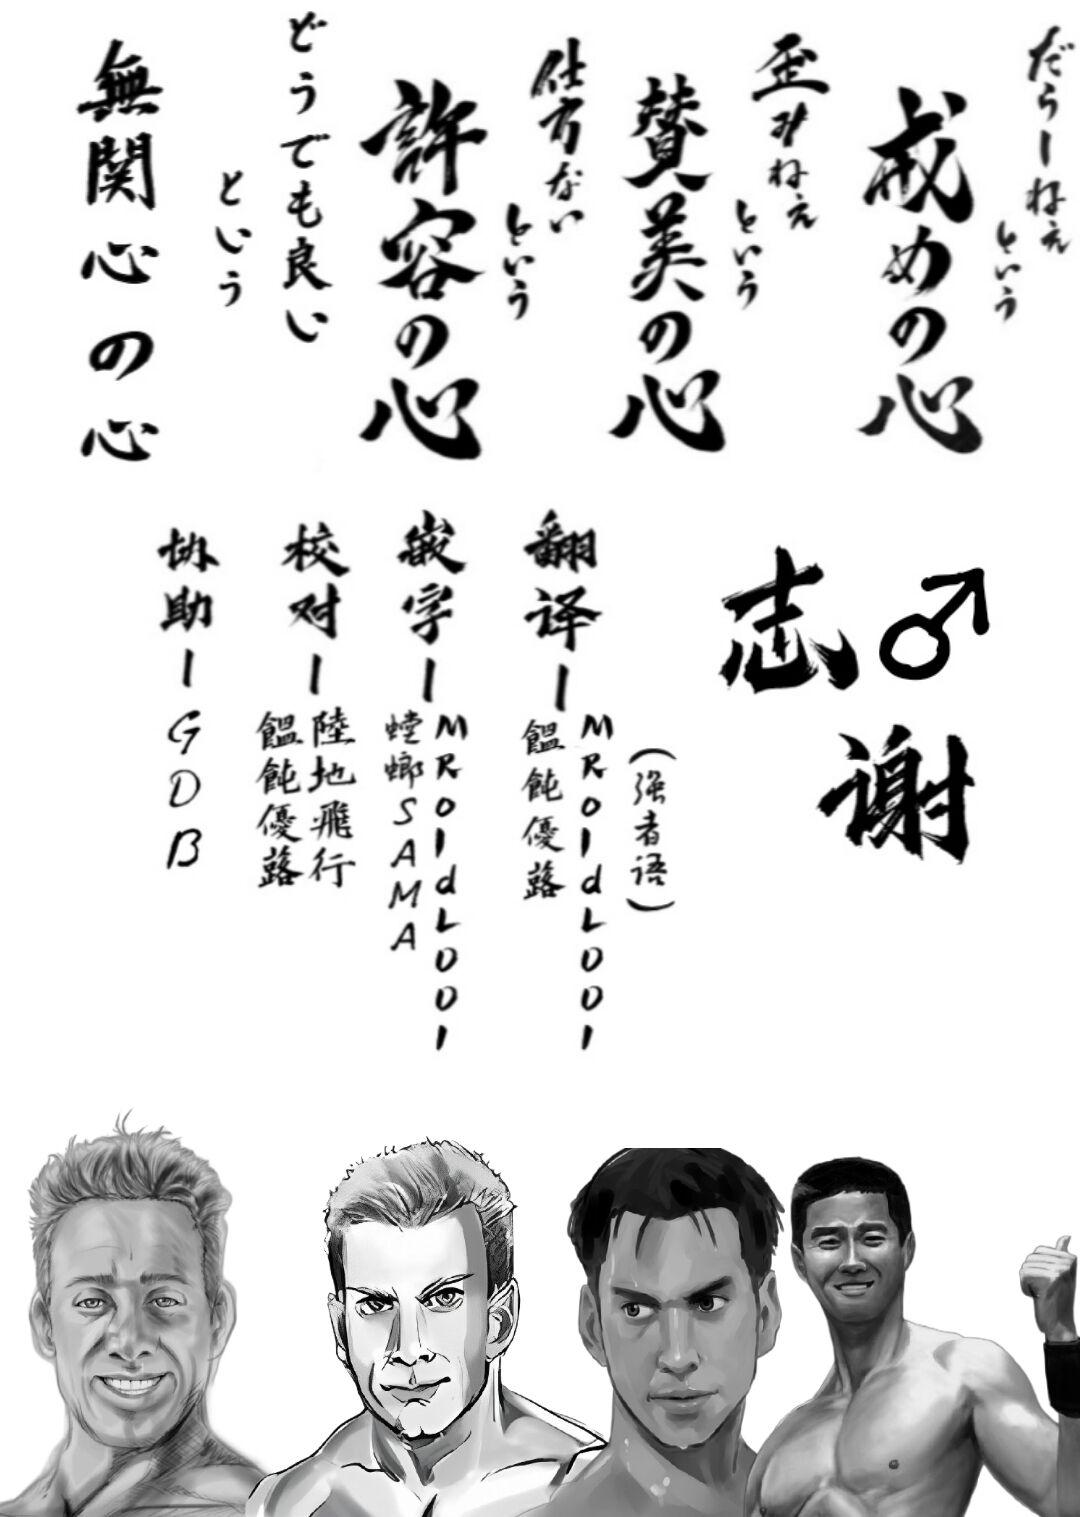 だらーねぇ
という
戒めの心
歪みねぇ
という
賛美の心
仕方ない
という
許容の心
どうでも良い
という
無関心の心
志♂
谢
翻译ー
(强者语)
MROldLOOI
餛飩優蕗
嵌字ー
MROldLOOI
螳螂SAMA
校对ー
陸地飛行
餛飩優蕗
协助ー
GDB